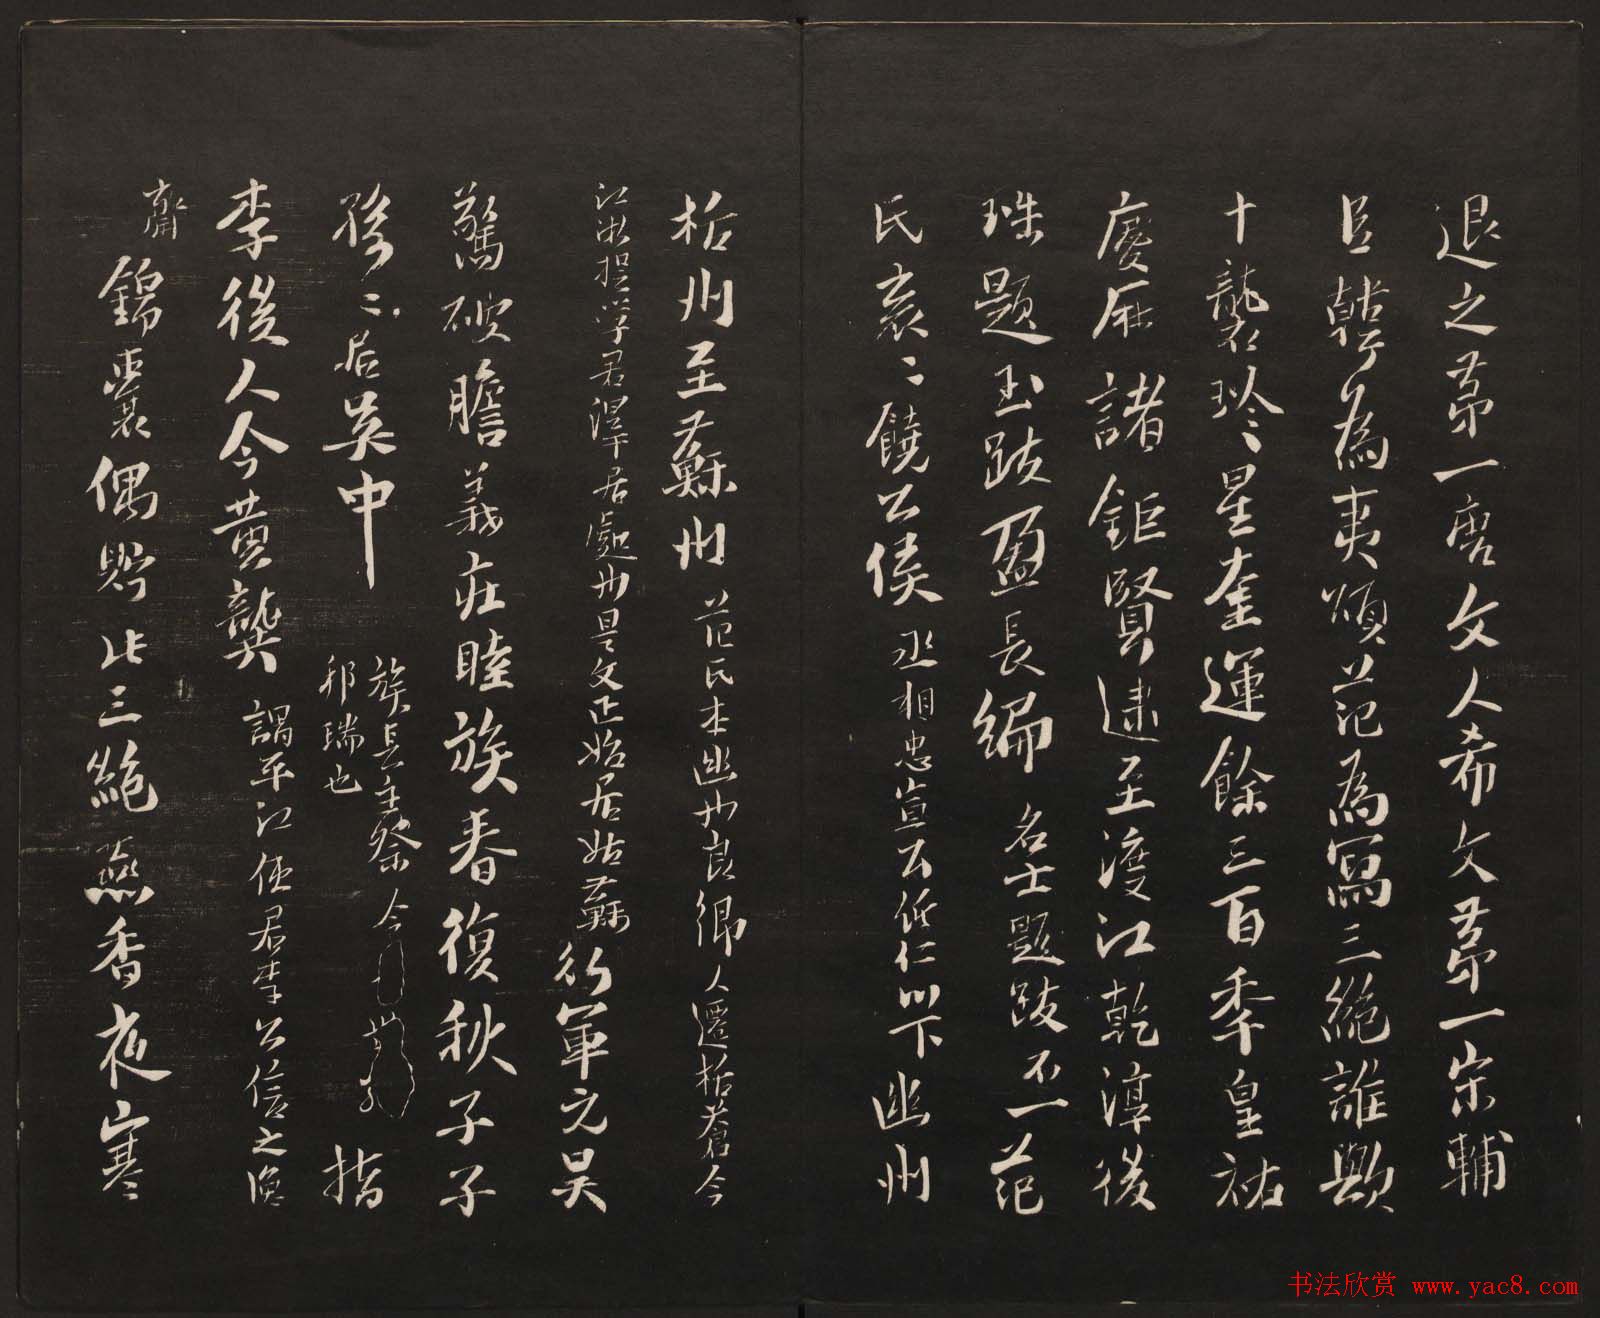 退之第一唐文人希文第一宋輔
臣韓為夷頌范為寫三絕誰歟
十襲珍星奎運餘三百年皇祐
慶厤諸鉅賢逮至渡江乾淳後
珠題玉跋盈長編名士題跋不一范
氏袞二饒公侯丞相忠宣公仁以下幽州
栝州至蘇州范氏本幽州良鄉人遷栝蒼今
江浙提學君澤居處州是文正始居姑蘇行軍元昊
驚破膽義庄睦族春復秋子子
孫二居吳中族長主祭今
邦瑞也指
李後人今黃龔謂平江使君李公信之
齋
錦囊偶貯此三絕燕香夜寒
書法欣赏 www.yac8.com